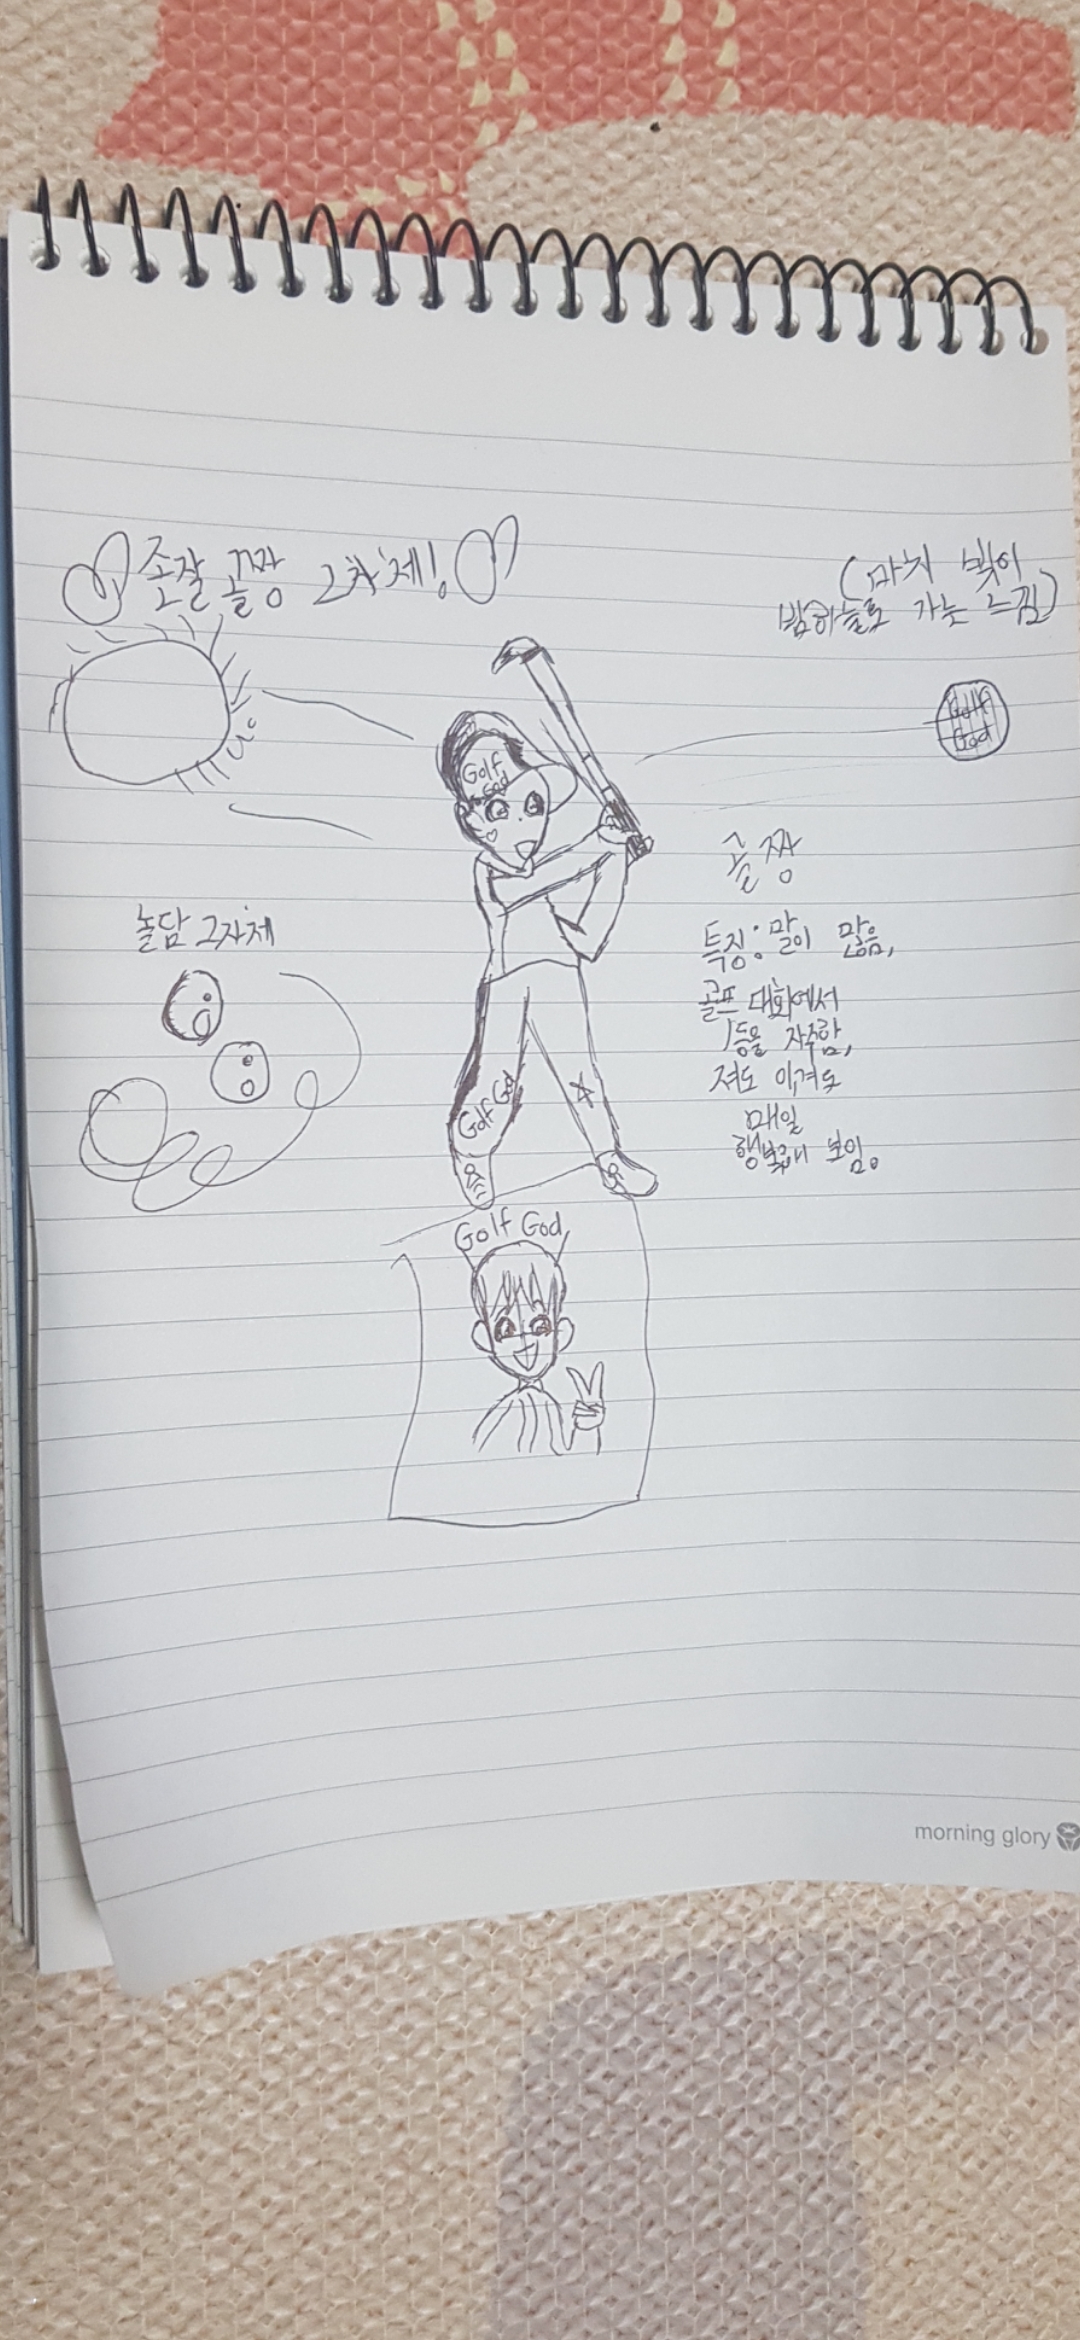 존잘 골짱 그자체!
(마치 빛이
밤하늘로 가는 느낌)
Golf
God
Golf
God
골짱
놀담 그자체
특징: 말이 많음,
골프 대회에서
1등을 자주함,
져도 이겨도
매일
행복해 보임.
Golf God
Golf God
morning glory